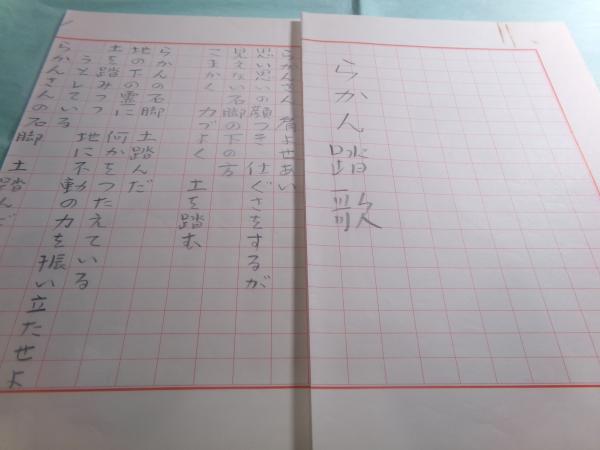 らかん踏歌
らかんさん 肩よせあい
思い思いの顔つき 仕ぐさをするが
見えない石脚の下の方
こまかく 力づよく
土を踏む
らかんの石脚 土踏んだ
地の下の霊に
土を踏みつつ 何かをつたえている
地に不動の力を振い立たせよ
うとしている
らかんさんの石脚 土踏んだ